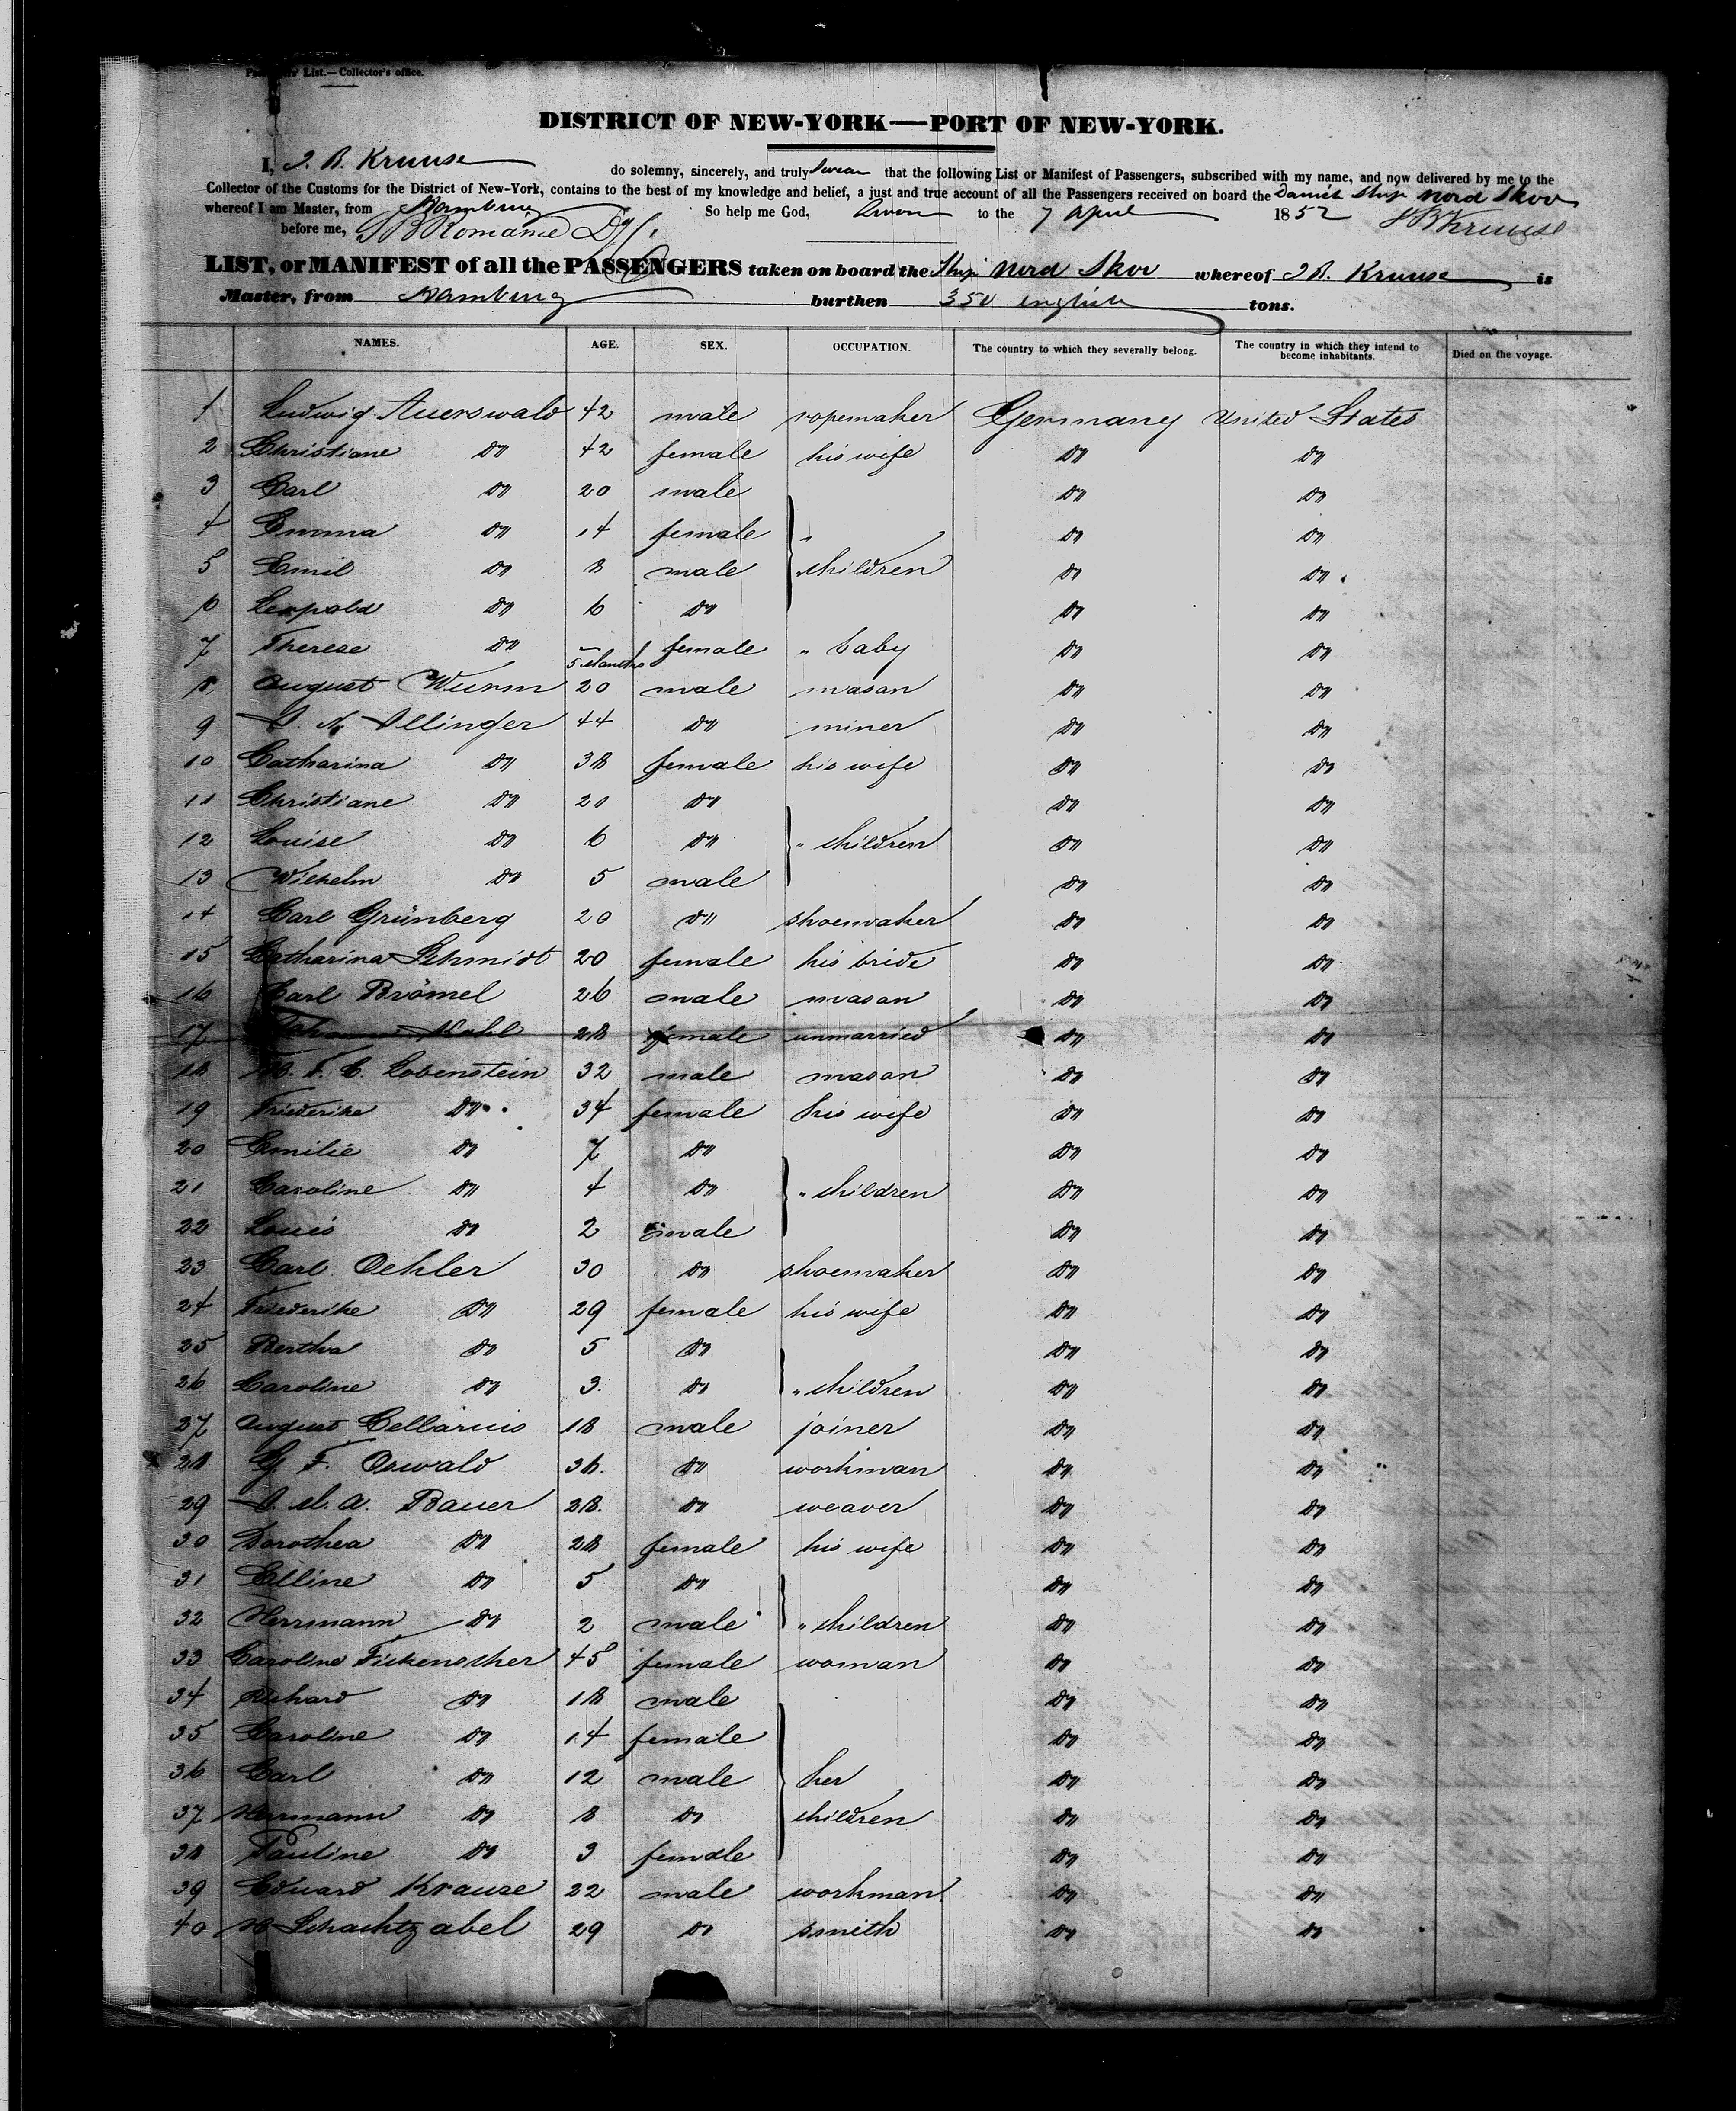 Passengers' List.—Collector's office.
DISTRICT OF NEW-YORK—PORT OF NEW-YORK.
I, J. B. Kruuse do solemny, sincerely, and truly swear that the following List or Manifest of Passengers, subscribed with my name, and now delivered by me to the
Collector of the Customs for the District of New-York, contains to the best of my knowledge and belief, a just and true account of all the Passengers received on board the Danish Ship Nord Skov
whereof I am Master, from Hamburg So help me God, Sworn to the 7 April 1852 J B Kruuse
before me,
LIST, or MANIFEST of all the PASSENGERS taken on board the Ship Nord Skov whereof J B. Kruuse is
Master, from Hamburg burthen 350 english tons.
NAMES. AGE. SEX. OCCUPATION. The country to which they severally belong. The country in which they intend to become inhabitants. Died on the voyage.
1 Ludwig Auerswald 42 male ropemaker Germany United States
2 Christiane do 42 female his wife do do
3 Carl do 20 male do do
4 Emma do 14 female " do do
5 Emil do 8 male " children do do
6 Leopold do 6 do do do
7 Therese do 5 Months female " baby do do
8 August Wurm 20 male mason do do
9 Illinger 44 do miner do do
10 Catharina do 38 female his wife do do
11 Christiane do 20 do do do
12 Louise do 6 do " children do do
13 Wilhelm do 5 male do do
14 Carl Grünberg 20 do shoemaker do do
15 Catharina Schmidt 20 female his bride do do
16 Carl Brömel 26 male mason do do
17 28 female unmarried do do
18 F. C. Lobenstein 32 male mason do do
19 Friederike do 34 female his wife do do
20 Emilie do 7 do do do
21 Caroline do 4 do " children do do
22 Louis do 2 male do do
23 Carl Oehler 30 do shoemaker do do
24 Friederike do 29 female his wife do do
25 Bertha do 5 do do do
26 Caroline do 3. do " children do do
27 August Cellarius 18 male joiner do do
28 G. F. Oswald 36. do workman do do
29 Bauer 28. do weaver do do
30 Dorothea do 28 female his wife do do
31 Elline do 5 do do do
32 Herrmann do 2 male " children do do
33 Caroline Fickenscher 45 female woman do do
34 Richard do 18 male do do
35 Caroline do 14 female do do
36 Carl do 12 male her do do
37 Herrmann do 8 do children do do
38 Pauline do 3 female do do
39 Eduard Krause 22 male workman do do
40 Schachtzabel 29 do smith do do